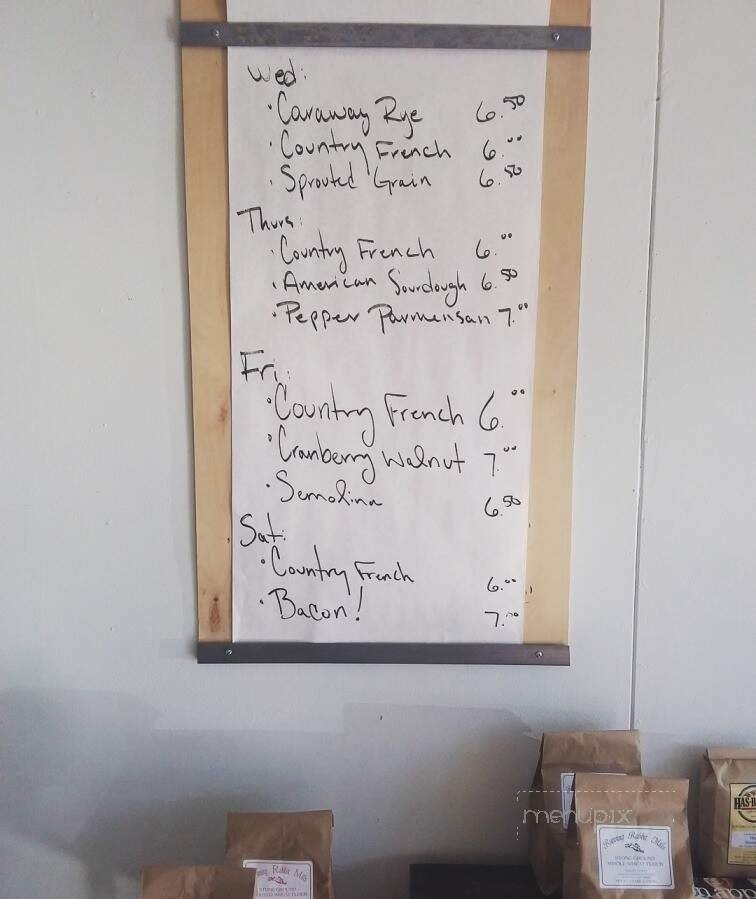 Wed:
· Caraway Rye 6.50
· Country French 6.00
· Sprouted Grain 6.50
Thurs:
· Country French 6.00
· American Sourdough 6.50
· Pepper Parmensan 7.00
Fri:
· Country French 6.00
· Cranberry Walnut 7.00
· Semolina 6.50
Sat:
· Country French 6.00
· Bacon! 7.00
menupix
Running Rabbit Mills
STONE GROUND
WHOLE WHEAT FLOUR
Rabbit Mills
STONE GROUND
FLOUR
HAS-B